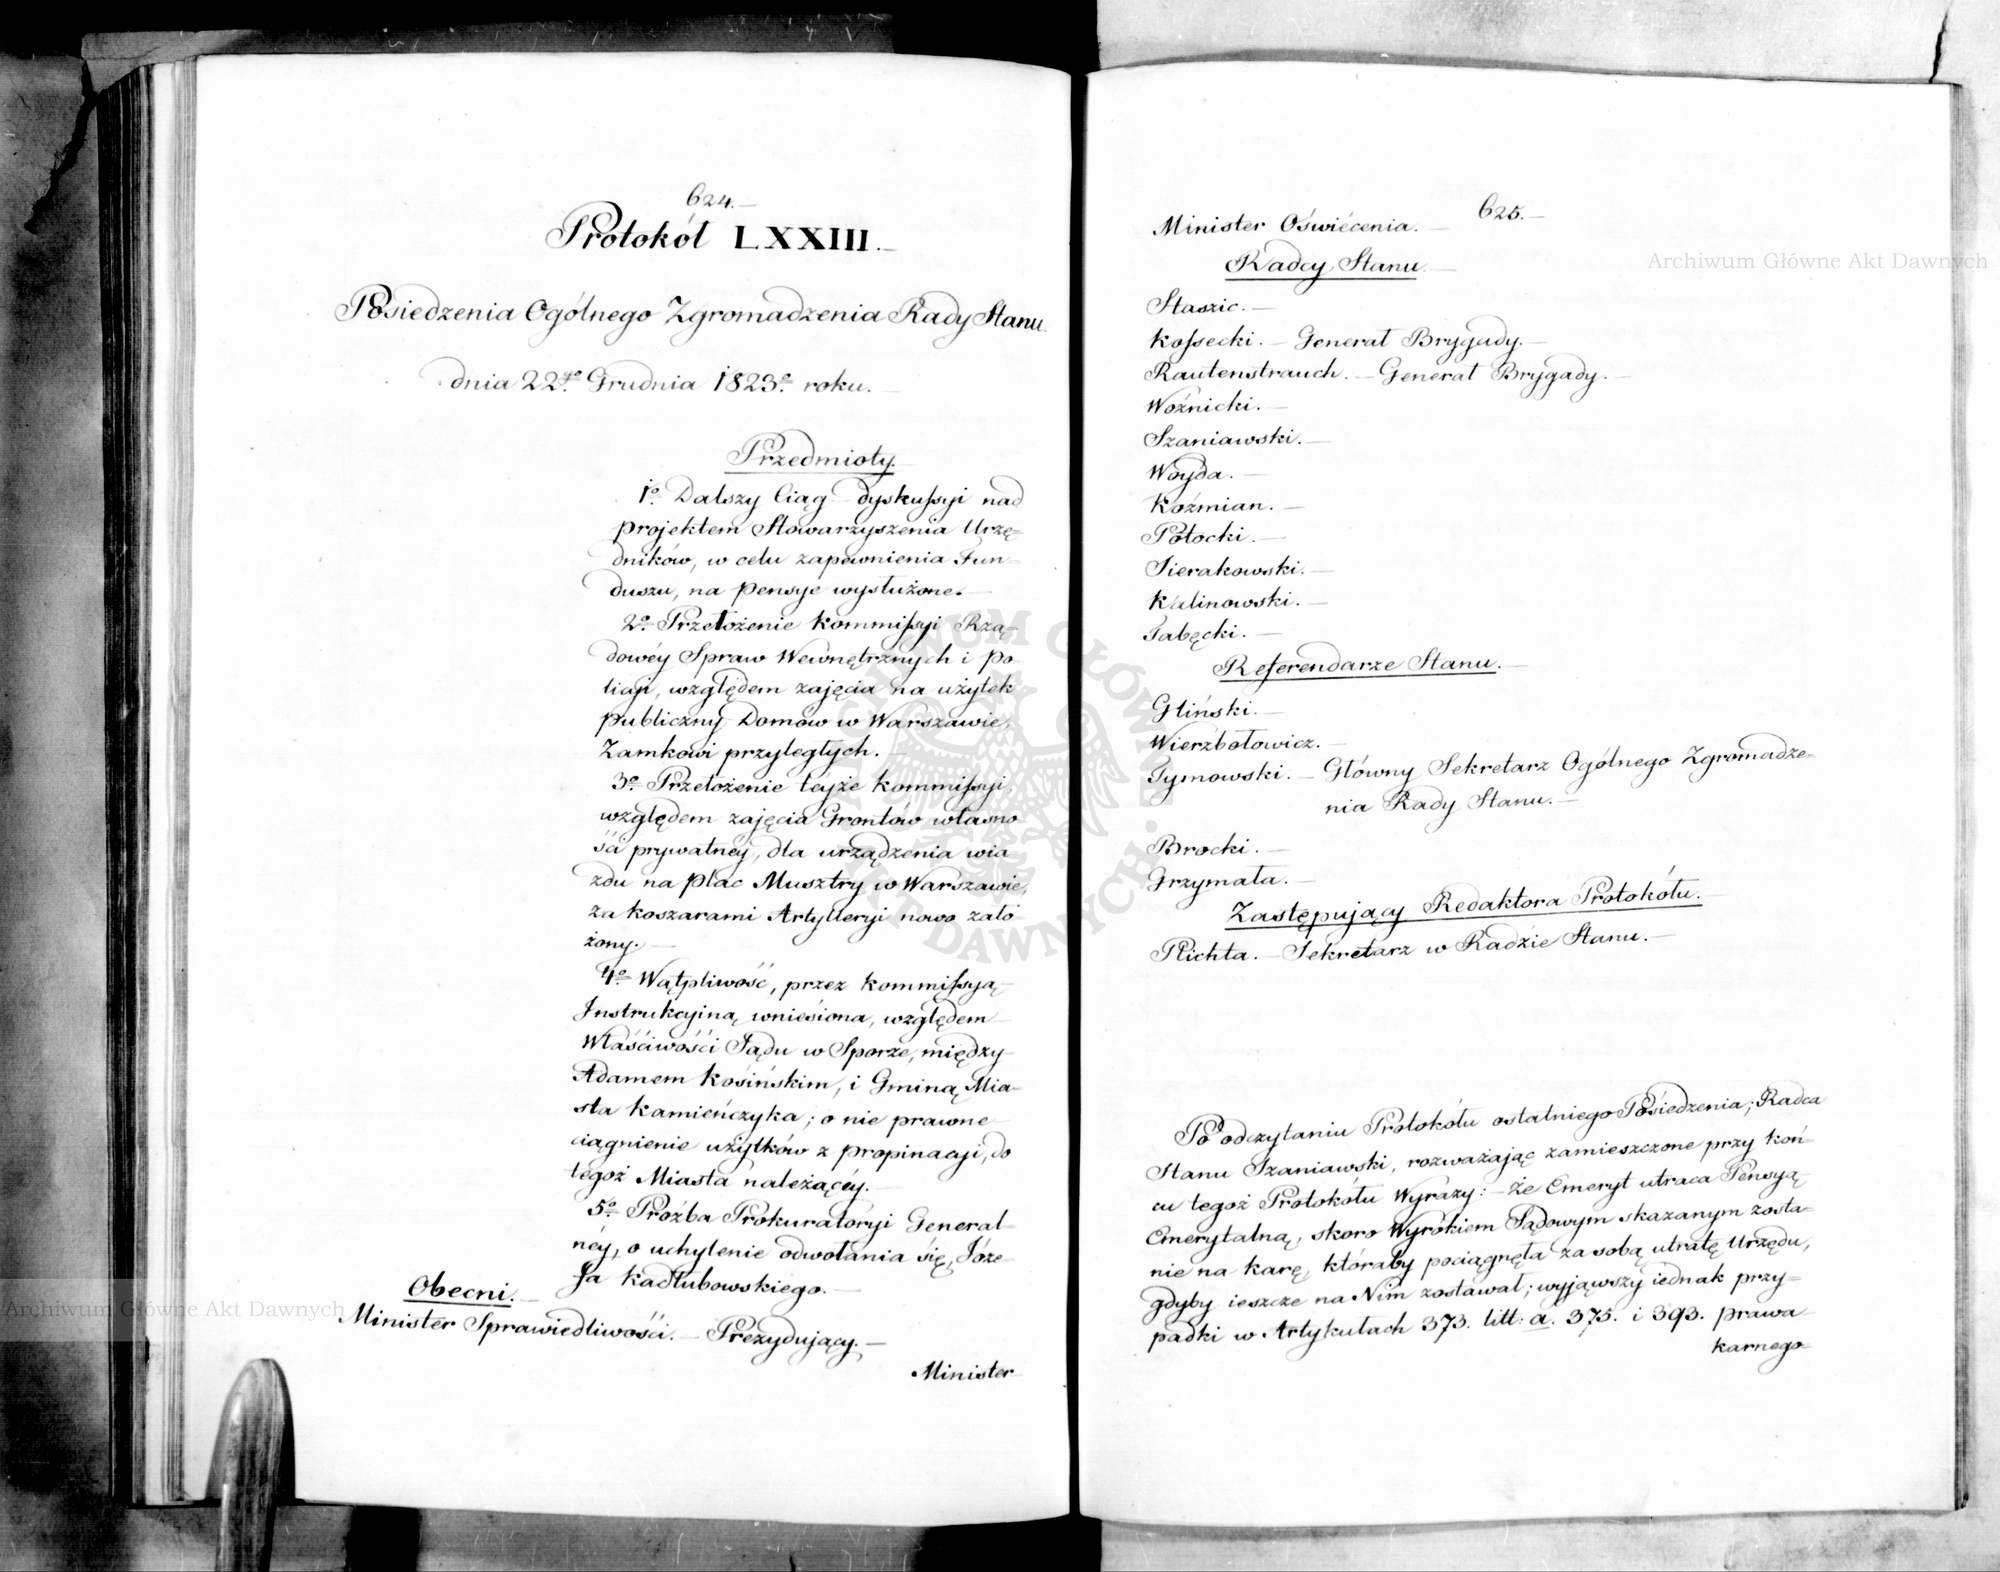 624.
Protokół LXXIII.
Posiedzenia Ogólnego Zgromadzenia Rady Stanu
dnia 22go Grudnia 1823o roku.
Przedmioty.
1o Dalszy Ciąg dyskußyi nad
projektem Stowarzyszenia Urzę-
dników, w celu zapewnienia Fun-
duszu, na pensye wysłużone.
2o Przełożenie Kommißyi Rzą-
dowéy Spraw Wewnętrznych i Po-
licyi, względem zajęcia na użytek
publiczny Domów w Warszawie,
Zamkowi przyległych.
3o Przełożenie teyże Kommißyi,
względem zajęcia Grontów własno-
ści prywatnéy, dla urządzenia wia-
zdu na plac Musztry w Warszawie,
za koszarami Artylleryi nowo zało-
żony.
4o Wątpliwość, przez Kommißyą
Instrukcyiną wniesiona, względem
Właściwości Sądu w Sporze, między
Adamem Kosińskim, i Gminą Mia-
sta Kamieńczyka; o nie prawne
ciągnienie użytków z propinacyi, do
tegoż Miasta należącéy.
5o Proźba Prokuratoryi General-
néy, o uchylenie odwołania się, Józe-
fa Kadłubowskiego.
Obecni.
Minister Sprawiedliwości. – Prezydujący.
Minister
625.
Minister Oświécenia.
Radcy Stanu
Staszic.
Koßecki. – Generał Brygady.
Rautenstrauch. – Generał Brygady.
Woźnicki.
Szaniawski.
Woyda.
Koźmian.
Potocki.
Sierakowski.
Kalinowski.
Tabęcki.
Referendarze Stanu.
Gliński.
Wierzbołowicz.
Tymowski. – Główny Sekretarz Ogólnego Zgromadze-
nia Rady Stanu.
Brocki.
Grzymała.
Zastępujący Redaktora Protokółu.
Plichta. – Sekretarz w Radzie Stanu.
Po odczytaniu Protokółu ostatniego Posiedzenia; Radca
Stanu Szaniawski, rozważając zamieszczone przy koń-
cu tegoż Protokółu Wyrazy: – że Emeryt utraca Pensyą
Emerytalną, skoro Wyrokiem Sądowym skazanym zosta-
nie na karę, któraby pociągnęła za sobą utratę Urzędu,
gdyby ieszcze na Nim zostawał; wyjąwszy iednak przy-
padki w Artykułach 373. litt: a. 375. i 393. prawa
karnego
Archiwum Główne Akt Dawnych
Archiwum Główne Akt Dawnych
ARCHIWUM GŁÓWNE AKT DAWNYCH